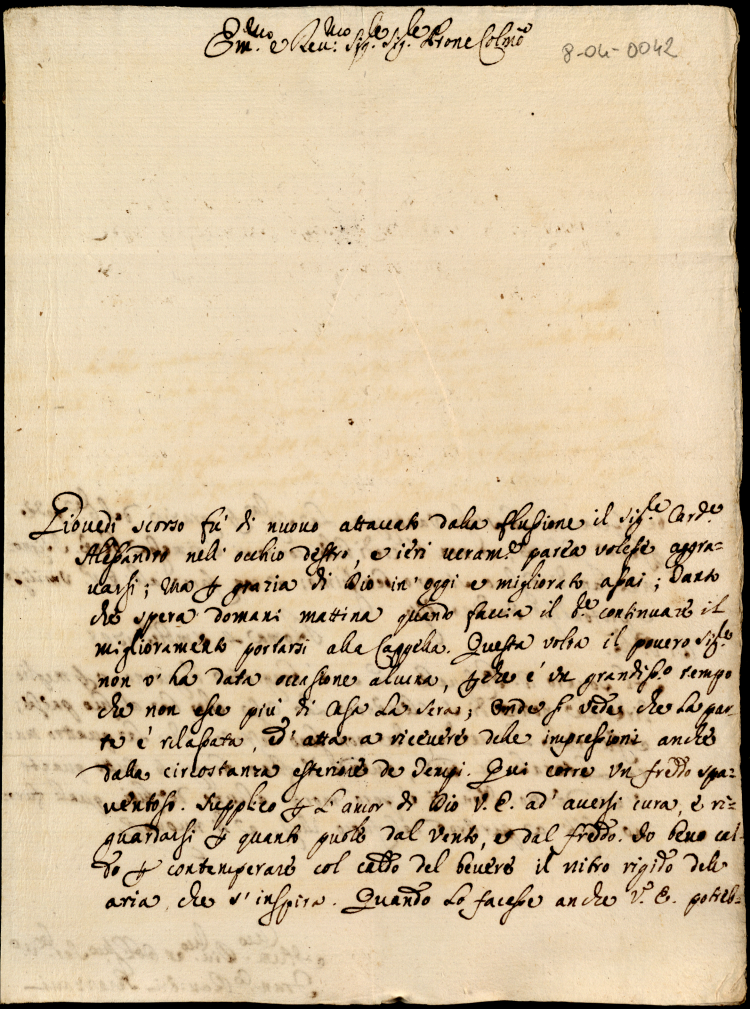 Em.mo e Rev.mo Sig.re Sig.re Prone Colmo
8-04-0042
Giovedi scorso fù di nuovo attaccato dalla flussione il Sig.re Card.e
Alessandro nell' occhio destro, e ieri veram.e parea volesse aggra=
varsi; Ma p grazia di Dio in oggi e migliorato assai; Tanto
che spera domani mattina quando faccia il continuare il
miglioramento portarsi alla Cappella. Questa volta il povero Sig.re
non v' ha data occasione alcuna, pche è un grandiss.o tempo
che non esce più di Casa La sera; Onde si vede, che La par
te è rilassata, ed' atta a ricevere delle impressioni anche
dalla circostanza esteriore de Tempi. Qui corre un freddo spa=
ventoso. Supplico p L' amor di Dio V. E. ad' aversi cura, e ri=
guardarsi p quanto puole dal vento, e dal freddo. Io bevo cal=
do p contemperare col caldo del bevere il nitro rigido dell
aria, che s' inspira. Quando Lo facesse anche V. E. potreb=